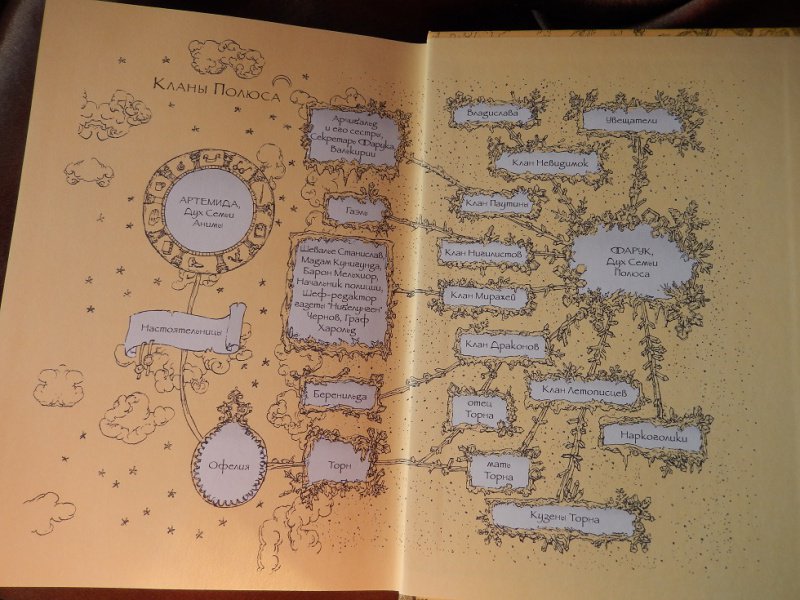 Кланы Полюса
АРТЕМИДА,
Дух Семьи
Анимы
Настоятельницы
Офелия
Арчибальд
и его сестры,
Секретарь Фарука,
Валькирии
Гаэль
Шевалье Станислав,
Мадам Кунигунда,
Барон Мельхиор,
Начальник полиции,
Шеф-редактор
газеты "Нибелунген"
Чернов, Граф
Харольд
Беренильда
Торн
Владислава
Увещатели
Клан Невидимок
Клан Паутины
Клан Нигилистов
ФАРУК,
Дух Семьи
Полюса
Клан Миражей
Клан Драконов
Клан Летописцев
отец
Торна
Наркоголики
мать
Торна
Кузены Торна